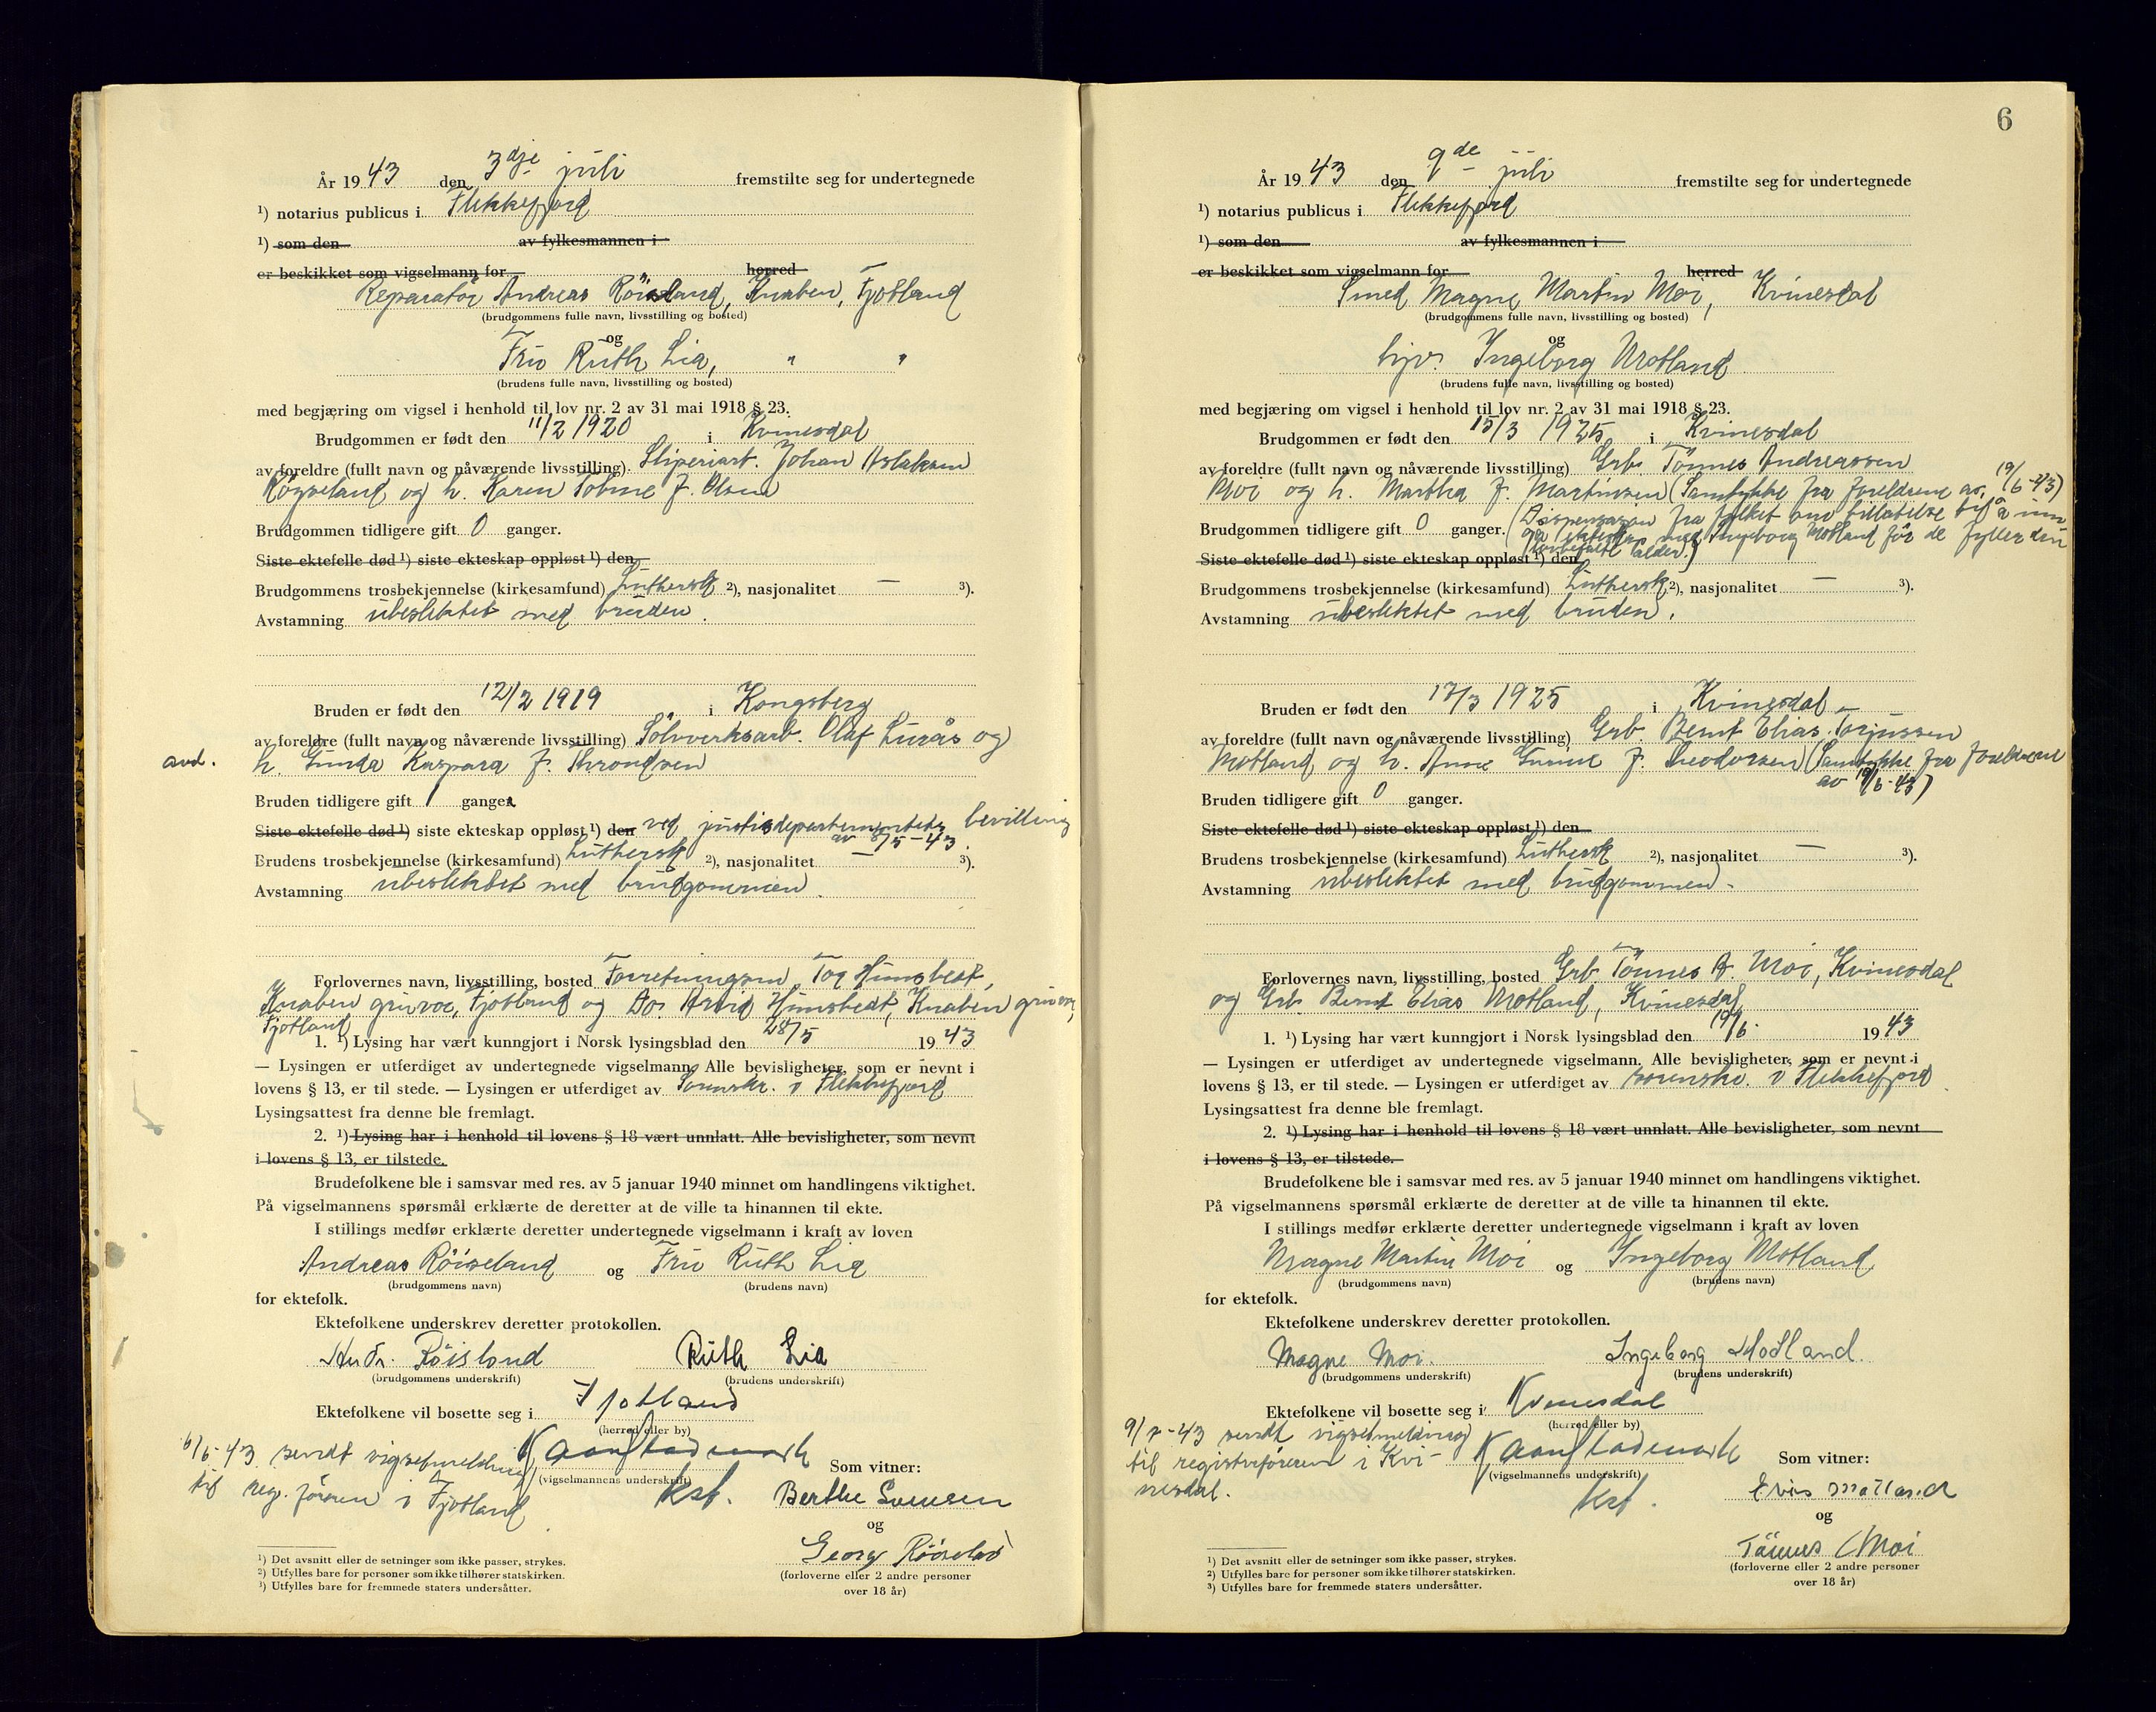 År 1943 den 3dje juli fremstilte seg for undertegnede
¹) notarius publicus i Flekkefjord
¹) som den av fylkesmannen i
er beskikket som vigselmann for herred
Reparatør Andreas Röiseland, Knaben, Fjotland
(brudgommens fulle navn, livsstilling og bosted)
og
Fru Ruth Lia, " "
(brudens fulle navn, livsstilling og bosted)
med begjæring om vigsel i henhold til lov nr. 2 av 31 mai 1918 § 23.
Brudgommen er født den 11/2 1920 i Kvinesdal
av foreldre (fullt navn og nåværende livsstilling) Sliperiarb. Johan Aslaksen
Röyseland og h. Karen Tobine f. Olsen
Brudgommen tidligere gift 0 ganger.
Siste ektefelle død ¹) siste ekteskap oppløst ¹) den
Brudgommens trosbekjennelse (kirkesamfund) Luthersk ²), nasjonalitet — ³).
Avstamning ubeslektet med bruden.
Bruden er født den 12/2 1919 i Kongsberg
av foreldre (fullt navn og nåværende livsstilling) Sölvverksarb. Olaf Lurås og
avd. h. Gunda Kaspara f. Throndsen
Bruden tidligere gift 1 ganger
Siste ektefelle død ¹) siste ekteskap oppløst ¹) den ved justisdepartementets bevilling
av 8/5-43.
Brudens trosbekjennelse (kirkesamfund) Luthersk ²), nasjonalitet — ³).
Avstamning ubeslektet med brudgommen.
Forlovernes navn, livsstilling, bosted Forretningsm.
Knaben gruver, Fjotland og Do. Arvid Himstedt, Knaben gruver,
Fjotland
1. ¹) Lysing har vært kunngjort i Norsk lysingsblad den 28/5 1943
— Lysingen er utferdiget av undertegnede vigselmann. Alle bevisligheter, som er nevnt i
lovens § 13, er til stede. — Lysingen er utferdiget av Sorenskr. i Flekkefjord
Lysingsattest fra denne ble fremlagt.
2. ¹) Lysing har i henhold til lovens § 18 vært unnlatt. Alle bevisligheter, som nevnt
i lovens § 13, er tilstede.
Brudefolkene ble i samsvar med res. av 5 januar 1940 minnet om handlingens viktighet.
På vigselmannens spørsmål erklærte de deretter at de ville ta hinannen til ekte.
I stillings medfør erklærte deretter undertegnede vigselmann i kraft av loven
Andreas Röiseland og Fru Ruth Lia
(brudgommens navn) (brudens navn)
for ektefolk.
Ektefolkene underskrev deretter protokollen.
Andr. Röisland Ruth Lia
(brudgommens underskrift) (brudens underskrift)
Ektefolkene vil bosette seg i Fjotland
(herred eller by)
6/6-43 sendt vigselmelding
til reg. föreren i Fjotland
(vigselmannens underskrift)
kst.
Som vitner:
Berthe Svensen
og
Georg Röiseland
(forloverne eller 2 andre personer
over 18 år)
¹) Det avsnitt eller de setninger som ikke passer, strykes.
²) Utfylles bare for personer som ikke tilhører statskirken.
³) Utfylles bare for fremmede staters undersåtter.
6
År 1943 den 9de juli fremstilte seg for undertegnede
¹) notarius publicus i Flekkefjord
¹) som den av fylkesmannen i
er beskikket som vigselmann for herred
Smed Magne Martin Moi, Kvinesdal
(brudgommens fulle navn, livsstilling og bosted)
og
hjv. Ingeborg Motland
(brudens fulle navn, livsstilling og bosted)
med begjæring om vigsel i henhold til lov nr. 2 av 31 mai 1918 § 23.
Brudgommen er født den 15/3 1925 i Kvinesdal
av foreldre (fullt navn og nåværende livsstilling) Grb. Tönnes Andreassen
Moi og h. Martha f. Martinsen (Samtykke fra foreldrene av 19/6-43)
Brudgommen tidligere gift 0 ganger. (Dispensasjon fra fylket om tillatelse til å inn
gå ekteskap med Ingeborg Motland før de fyller den
lovbefalte alder.)
Siste ektefelle død ¹) siste ekteskap oppløst ¹) den
Brudgommens trosbekjennelse (kirkesamfund) Luthersk ²), nasjonalitet — ³).
Avstamning ubeslektet med bruden.
Bruden er født den 17/3 1925 i Kvinesdal
av foreldre (fullt navn og nåværende livsstilling) Grb. Bernt Elias Torjussen
Motland og h. Anne Gurine f. Theodorsen (Samtykke fra foreldrene
av 19/6-43)
Bruden tidligere gift 0 ganger.
Siste ektefelle død ¹) siste ekteskap oppløst ¹) den
Brudens trosbekjennelse (kirkesamfund) Luthersk ²), nasjonalitet — ³).
Avstamning ubeslektet med brudgommen.
Forlovernes navn, livsstilling, bosted Grb. Tönnes A. Moi, Kvinesdal
og Grb. Bernt Elias Motland, Kvinesdal
1. ¹) Lysing har vært kunngjort i Norsk lysingsblad den 19/6. 1943
— Lysingen er utferdiget av undertegnede vigselmann. Alle bevisligheter, som er nevnt i
lovens § 13, er til stede. — Lysingen er utferdiget av sorenskr. i Flekkefjord
Lysingsattest fra denne ble fremlagt.
2. ¹) Lysing har i henhold til lovens § 18 vært unnlatt. Alle bevisligheter, som nevnt
i lovens § 13, er tilstede.
Brudefolkene ble i samsvar med res. av 5 januar 1940 minnet om handlingens viktighet.
På vigselmannens spørsmål erklærte de deretter at de ville ta hinannen til ekte.
I stillings medfør erklærte deretter undertegnede vigselmann i kraft av loven
Magne Martin Moi og Ingeborg Motland
(brudgommens navn) (brudens navn)
for ektefolk.
Ektefolkene underskrev deretter protokollen.
Magne Moi. Ingeborg Motland.
(brudgommens underskrift) (brudens underskrift)
Ektefolkene vil bosette seg i Kvinesdal
(herred eller by)
9/7-43 sendt vigselmelding
til registerföreren i Kvi-
nesdal.
(vigselmannens underskrift)
kst.
Som vitner:
Motland
og
Tönnes Moi
(forloverne eller 2 andre personer
over 18 år)
¹) Det avsnitt eller de setninger som ikke passer, strykes.
²) Utfylles bare for personer som ikke tilhører statskirken.
³) Utfylles bare for fremmede staters undersåtter.